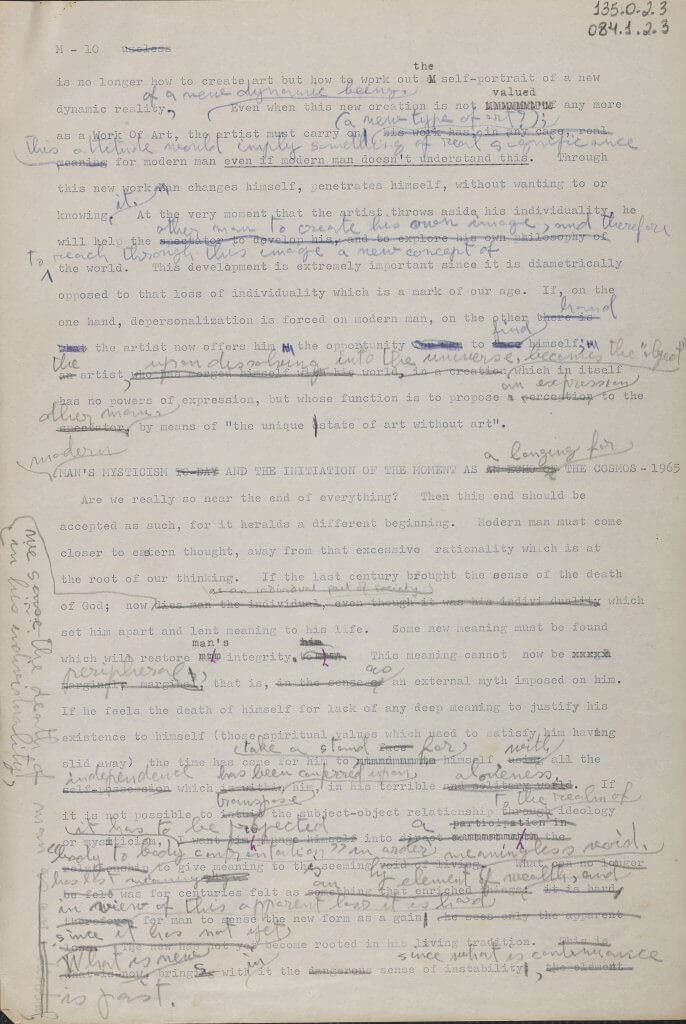 135.0-2.3
084.1.2.3
M - 10 useless
the
is no longer how to create art but how to work out M self-portrait of a new
of a new dynamic being. valued
dynamic reality. Even when this new creation is not any more
(a new type of art?);
as a Work Of Art, the artist must carry on his work has, in any case, real
this attitude would imply something of real significance
meaning for modern man even if modern man doesn't understand this. Through
this new work man changes himself, penetrates himself, without wanting to or
it.
knowing. At the very moment that the artist throws aside his individuality, he
other man to create his own image, and therefore
will help the spectator to develop his, and to explore his own philosophy of
to reach through this image a new concept of
the world. This development is extremely important since it is diametrically
opposed to that loss of individuality which is a mark of our age. If, on the
hand
one hand, depersonalization is forced on modern man, on the other there is
find
that the artist now offers him the opportunity to himself;
the upon dissolving into the universe, becomes the "object"
an artist, who has merged himself with his world, in a creation which in itself
an expression
has no powers of expression, but whose function is to propose a perception to the
other man
spectator, by means of "the unique state of art without art".
modern a longing for
MAN'S MYSTICISM TO-DAY AND THE INITIATION OF THE MOMENT AS AN ECHO OF THE COSMOS - 1965
Are we really so near the end of everything? Then this end should be
accepted as such, for it heralds a different beginning. Modern man must come
closer to eastern thought, away from that excessive rationality which is at
the root of our thinking. If the last century brought the sense of the death
as an individual part of society
of God; now dies man the individual, even though it was his individuality which
we sense the death of man
in his individuality,
set him apart and lent meaning to his life. Some new meaning must be found
man's him
which will restore integrity. This meaning cannot now be xxxxx
peripheral, as
marginal, that is, in the sense of an external myth imposed on him.
If he feels the death of himself for lack of any deep meaning to justify his
existence to himself (those spiritual values which used to satisfy him having
(take a stand for with
slid away) the time has come for him to face himself, using all the
independence has been conferred upon aloneness.
self-possession which is within him, in his terrible and solitary world. If
transpose to the realm of
it is not possible to the subject-object relationship through ideology
it has to be projected a participation in
or mysticism, I want him to engage himself into direct the
"body to body confrontation" in order meaningless void.
relationship to give meaning to the seeming void of living. What can no longer
has lost meaning is an element of wealth, and
be felt was for centuries felt as something that enriched things. it is hard,
in view of this apparent loss it is hard
therefore for man to sense the new form as a gain, he sees only the apparent
since it has not yet
loss. The new has not yet become rooted in his living tradition. This is
What is new in since what is continuance
what is now, brings with it the dangerous sense of instability, the element
is past.